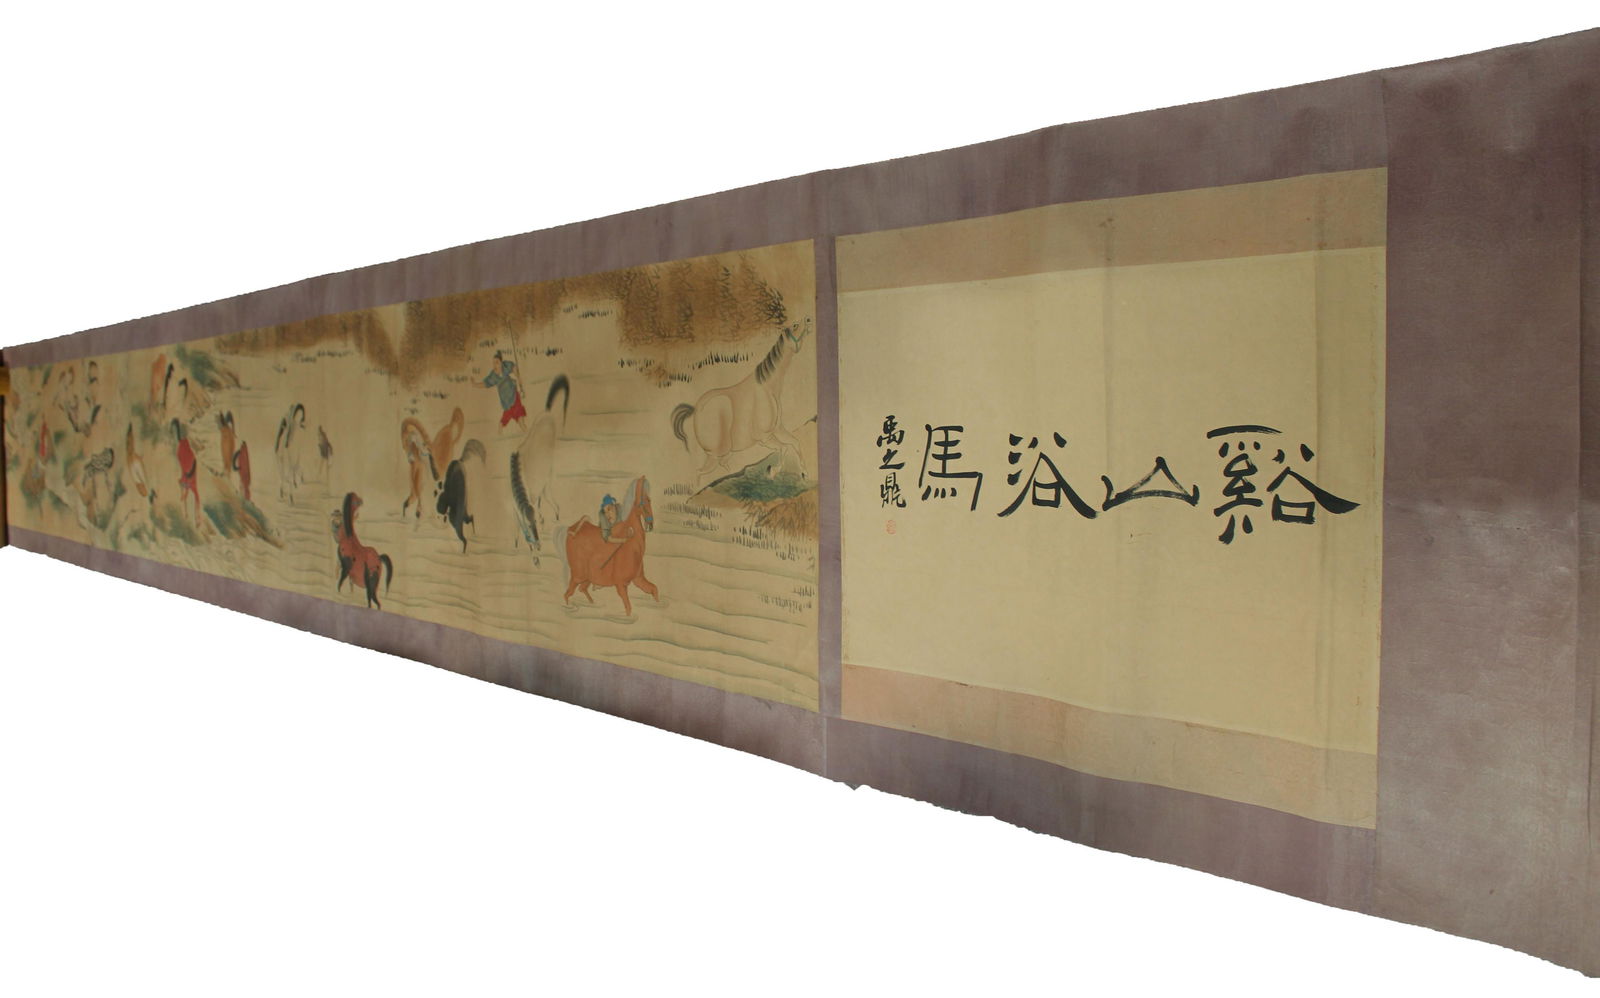 谿山浴馬
禹之鼎